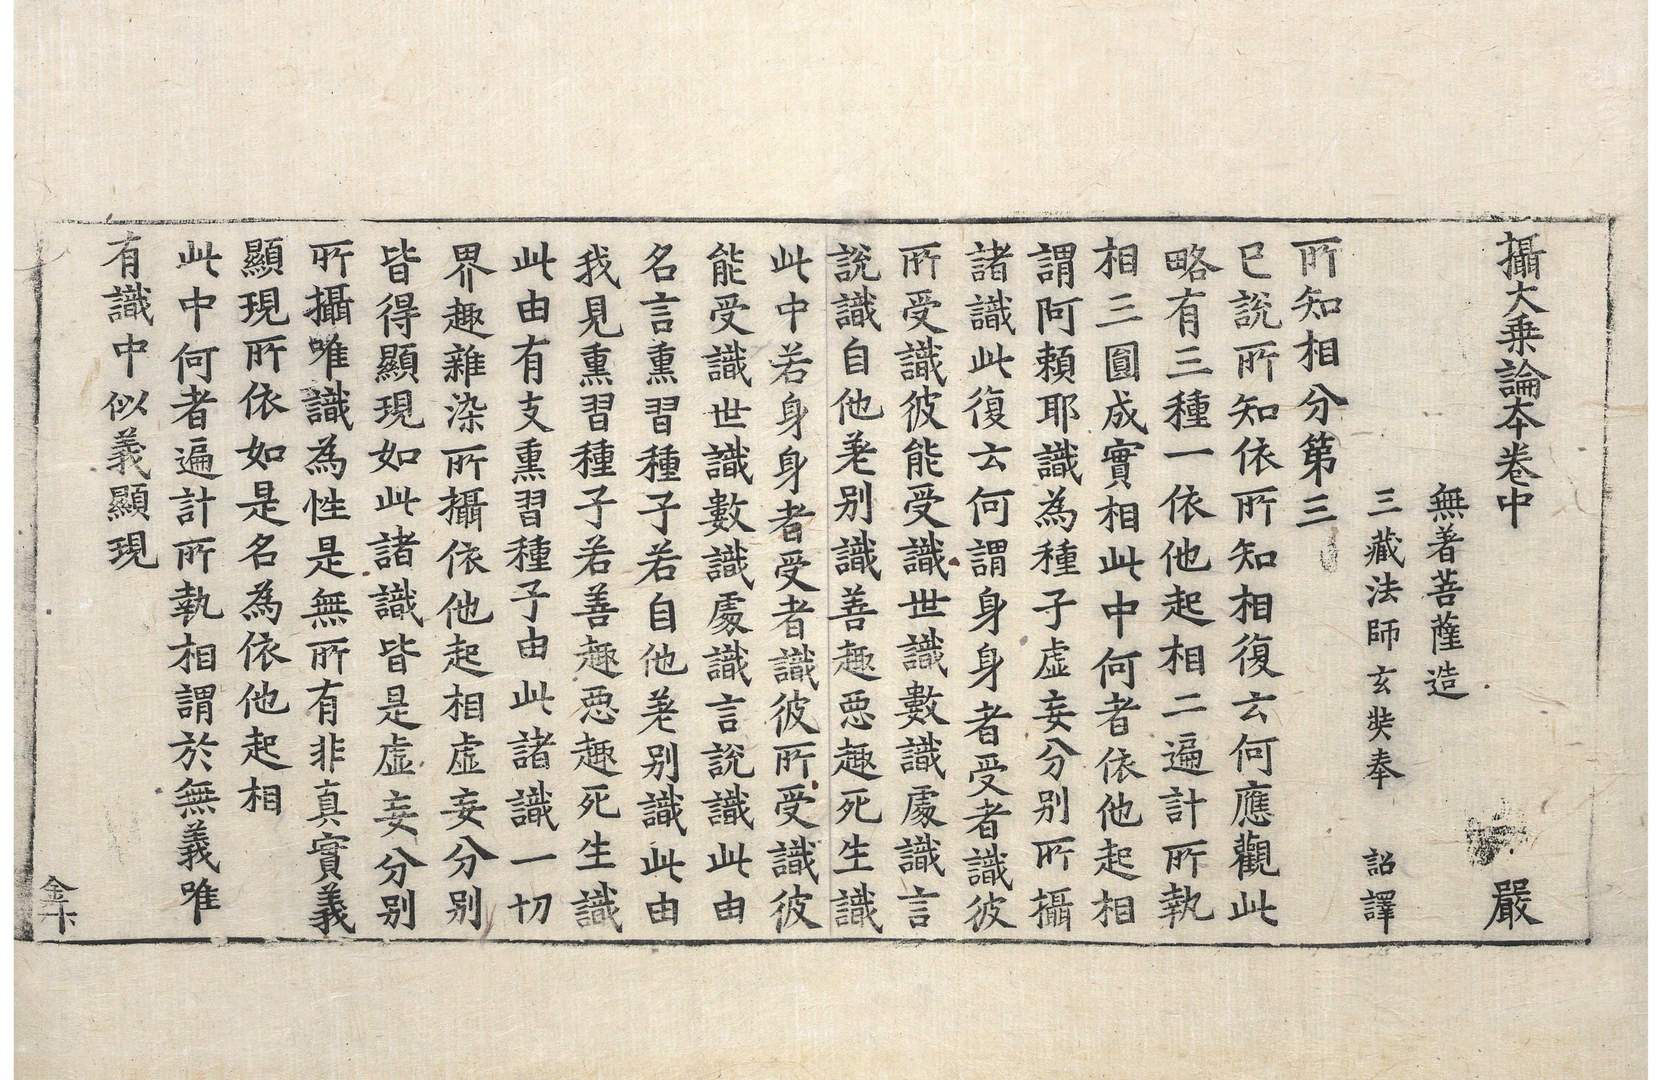 攝大乗論本卷中 嚴
無著菩薩造
三藏法師玄奘奉 詔譯
所知相分第三
已說所知依所知相復云何應觀此
略有三種一依他起相二遍計所執
相三圓成實相此中何者依他起相
謂阿賴耶識為種子虛妄分別所攝
諸識此復云何謂身身者受者識彼
所受識彼能受識世識數識處識言
說識自他差别識善趣惡趣死生識
此中若身身者受者識彼所受識彼
能受識世識數識處識言說識此由
名言熏習種子若自他差别識此由
我見熏習種子若善趣惡趣死生識
此由有支熏習種子由此諸識一切
界趣雜染所攝依他起相虛妄分别
皆得顯現如此諸識皆是虛妄分别
所攝唯識為性是無所有非真實義
顯現所依如是名為依他起相
此中何者遍計所執相謂於無義唯
有識中似義顯現
金十